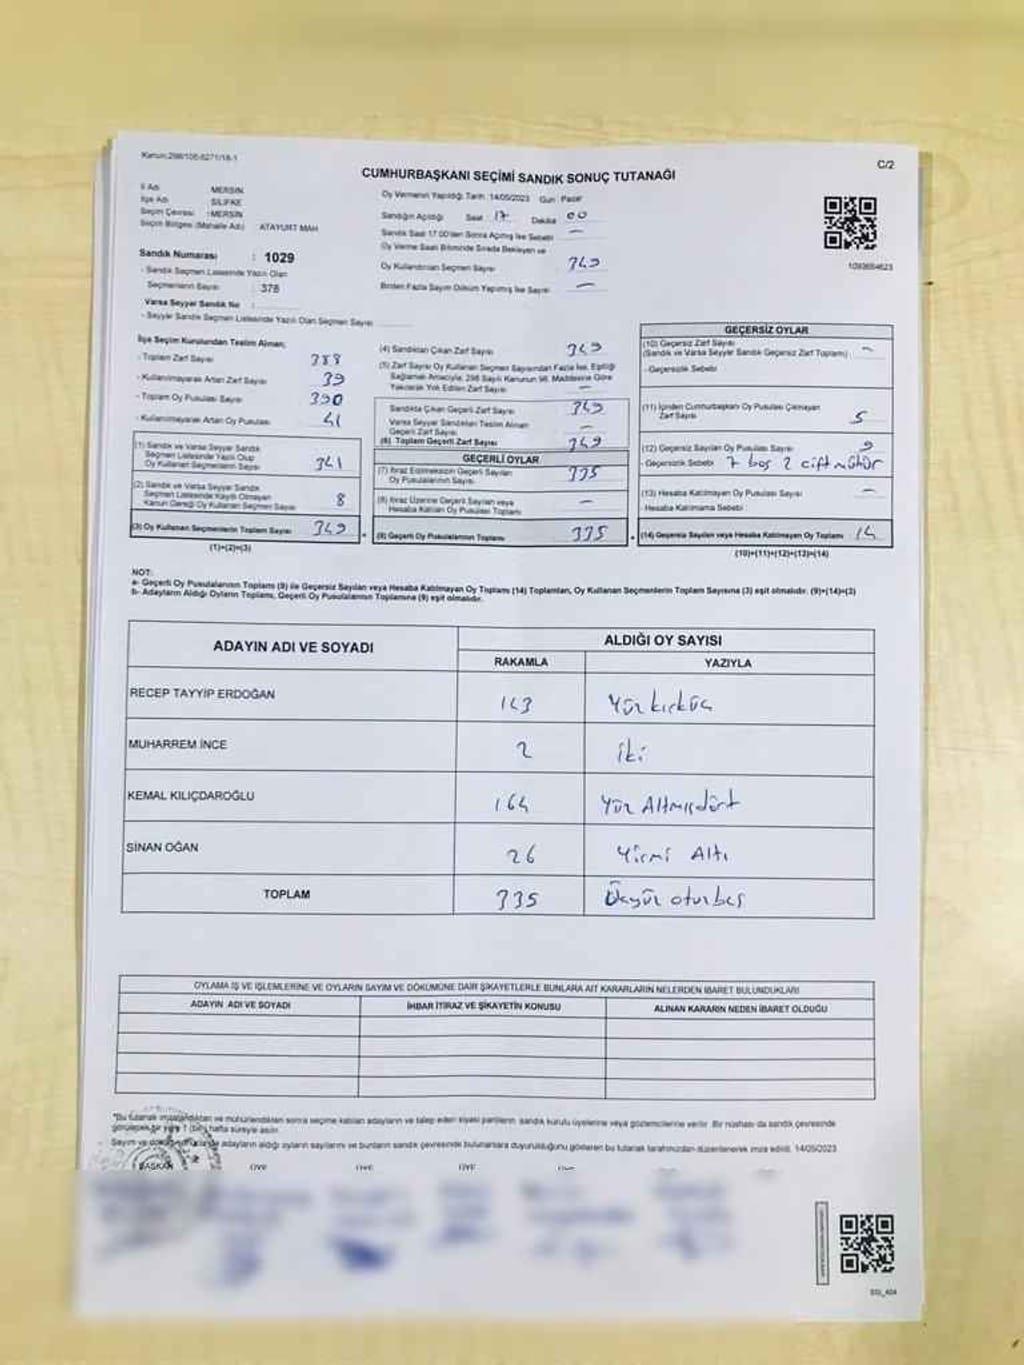 Kanun:298/105-6271/18-1
C/2
CUMHURBAŞKANI SEÇİMİ SANDIK SONUÇ TUTANAĞI
İl Adı MERSİN
İlçe Adı SİLİFKE
Seçim Çevresi :MERSİN
Seçim Bölgesi (Mahalle Adı) ATAYURT MAH
Sandık Numarası : 1029
- Sandık Seçmen Listesinde Yazılı Olan
Seçmenlerin Sayısı : 378
Varsa Seyyar Sandık No :
- Seyyar Sandık Seçmen Listesinde Yazılı Olan Seçmen Sayısı
Oy Vermenin Yapıldığı Tarih: 14/05/2023 Gün: Pazar
Sandığın Açıldığı Saat 17 Dakika 00
Sandık Saat 17:00'den Sonra Açılmış İse Sebebi —
Oy Verme Saati Bitiminde Sırada Bekleyen ve
Oy Kullandırılan Seçmen Sayısı 349
Birden Fazla Sayım Döküm Yapılmış İse Sayısı —
1093654623
İlçe Seçim Kurulundan Teslim Alınan;
- Toplam Zarf Sayısı 388
- Kullanılmayarak Artan Zarf Sayısı 39
- Toplam Oy Pusulası Sayısı 390
- Kullanılmayarak Artan Oy Pusulası 41
(1) Sandık ve Varsa Seyyar Sandık
Seçmen Listesinde Yazılı Olup
Oy Kullanan Seçmenlerin Sayısı 341
(2) Sandık ve Varsa Seyyar Sandık
Seçmen Listesinde Kayıtlı Olmayan
Kanun Gereği Oy Kullanan Seçmen Sayısı 8
(3) Oy Kullanan Seçmenlerin Toplam Sayısı 349
(1)+(2)=(3)
(4) Sandıktan Çıkan Zarf Sayısı 349
(5) Zarf Sayısı Oy Kullanan Seçmen Sayısından Fazla İse, Eşitliği
Sağlamak Amacıyla, 298 Sayılı Kanunun 98. Maddesine Göre
Yakılarak Yok Edilen Zarf Sayısı —
Sandıkta Çıkan Geçerli Zarf Sayısı 349
Varsa Seyyar Sandıktan Teslim Alınan
Geçerli Zarf Sayısı —
(6) Toplam Geçerli Zarf Sayısı 349
GEÇERLİ OYLAR
(7) İtiraz Edilmeksizin Geçerli Sayılan
Oy Pusulalarının Sayısı 335
(8) İtiraz Üzerine Geçerli Sayılan veya
Hesaba Katılan Oy Pusulası Toplamı —
(9) Geçerli Oy Pusulalarının Toplamı 335
GEÇERSİZ OYLAR
(10) Geçersiz Zarf Sayısı
(Sandık ve Varsa Seyyar Sandık Geçersiz Zarf Toplamı) —
- Geçersizlik Sebebi
(11) İçinden Cumhurbaşkanı Oy Pusulası Çıkmayan
Zarf Sayısı 5
(12) Geçersiz Sayılan Oy Pusulası Sayısı 9
- Geçersizlik Sebebi 7 boş 2 çift mühür
(13) Hesaba Katılmayan Oy Pusulası Sayısı —
- Hesaba Katılmama Sebebi
(14) Geçersiz Sayılan veya Hesaba Katılmayan Oy Toplamı 14
(10)+(11)+(12)+(13)=(14)
NOT:
a- Geçerli Oy Pusulalarının Toplamı (9) ile Geçersiz Sayılan veya Hesaba Katılmayan Oy Toplamı (14) Toplamları, Oy Kullanan Seçmenlerin Toplam Sayısına (3) eşit olmalıdır. (9)+(14)=(3)
b- Adayların Aldığı Oyların Toplamı, Geçerli Oy Pusulalarının Toplamına (9) eşit olmalıdır.
ADAYIN ADI VE SOYADI ALDIĞI OY SAYISI
RAKAMLA YAZIYLA
RECEP TAYYİP ERDOĞAN 143 Yüzkırküç
MUHARREM İNCE 2 iki
KEMAL KILIÇDAROĞLU 164 Yüz Altmışdört
SİNAN OĞAN 26 Yirmi Altı
TOPLAM 335 Üçyüz oturbeş
OYLAMA İŞ VE İŞLEMLERİNE VE OYLARIN SAYIM VE DÖKÜMÜNE DAİR ŞİKAYETLERLE BUNLARA AİT KARARLARIN NELERDEN İBARET BULUNDUKLARI
ADAYIN ADI VE SOYADI İHBAR İTİRAZ VE ŞİKAYETİN KONUSU ALINAN KARARIN NEDEN İBARET OLDUĞU
*Bu tutanak imzalandıktan ve mühürlendikten sonra seçime katılan adayların ve talep eden siyasi partilerin sandık kurulu üyelerine veya gözlemcilerine verilir. Bir nüshası da sandık çevresinde
görülecek bir yere 1 (bir) hafta süreyle asılır.
Sayım ve döküm sonunda adayların aldığı oyların sayılarını ve bunların sandık çevresinde bulunanlara duyurulduğunu gösteren bu tutanak tarafımızdan düzenlenerek imza edildi. 14/05/2023
BAŞKAN ÜYE ÜYE ÜYE